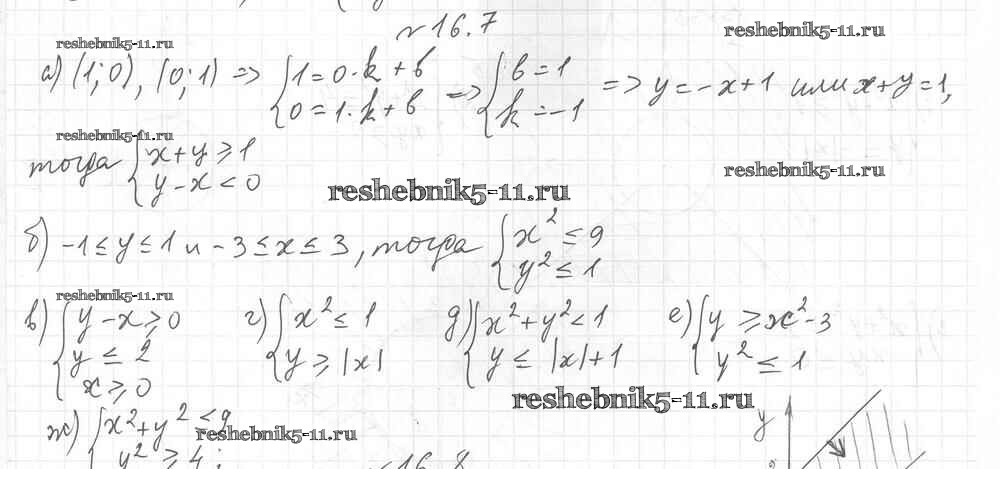 №16.7
reshebnik5-11.ru
reshebnik5-11.ru
а) (1; 0), (0; 1) => { 1 = 0·k + b => { b = 1 => y = -x + 1 или x + y = 1,
0 = 1·k + b k = -1
reshebnik5-11.ru
тогда { x + y ≥ 1
y - x < 0
reshebnik5-11.ru
reshebnik5-11.ru
б) -1 ≤ y ≤ 1 и -3 ≤ x ≤ 3, тогда { x² ≤ 9
y² ≤ 1
reshebnik5-11.ru
в) { y - x ≥ 0 г) { x² ≤ 1 д) { x² + y² < 1 е) { y ≥ x² - 3
y ≤ 2 y ≥ |x| y ≤ |x| + 1 y² ≤ 1
x ≥ 0
reshebnik5-11.ru
ж) { x² + y² ≤ 9
reshebnik5-11.ru
y² ≥ 4;
№16.8
y